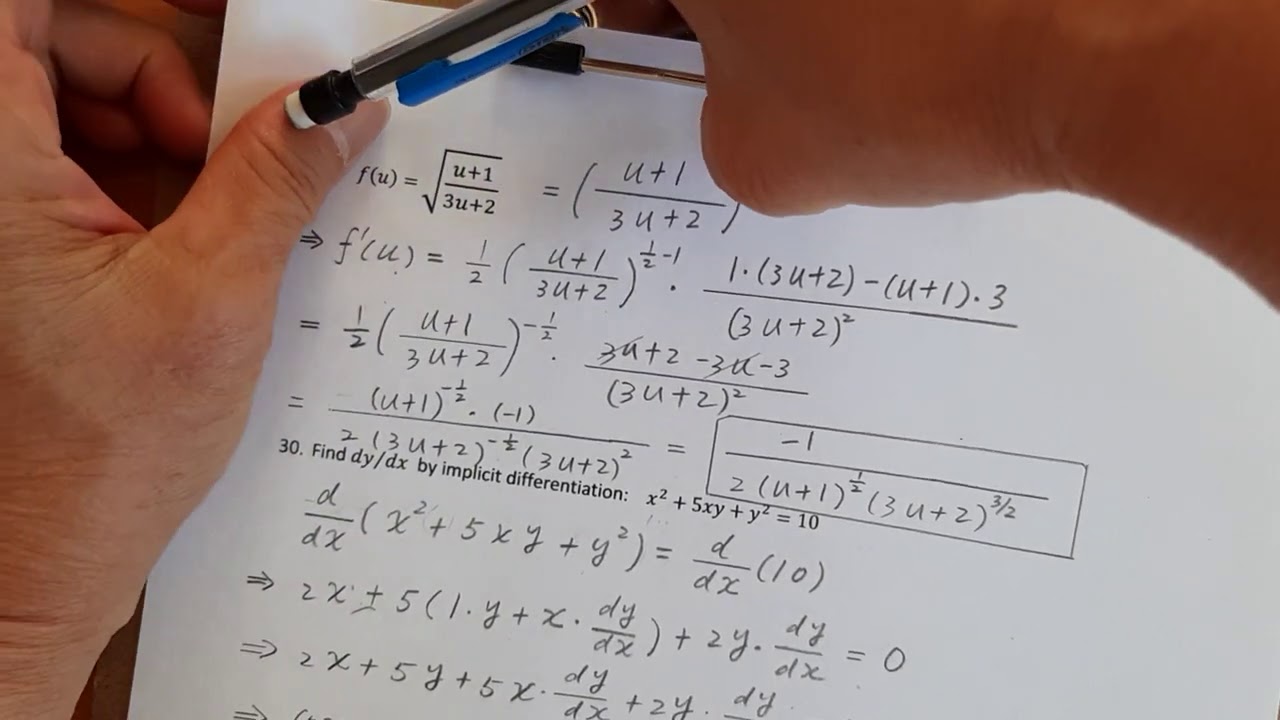 f(u) = √((u+1)/(3u+2)) = ((u+1)/(3u+2))
⇒ f'(u) = 1/2 ((u+1)/(3u+2))^(1/2 -1) · (1·(3u+2)-(u+1)·3)/((3u+2)²)
= 1/2 ((u+1)/(3u+2))^(-1/2) · (3u+2-3u-3)/((3u+2)²)
= ((u+1)^(-1/2) · (-1))/(2(3u+2)^(-1/2) (3u+2)²) = -1/(2(u+1)^(1/2) (3u+2)^(3/2))
30. Find dy/dx by implicit differentiation: x² + 5xy + y² = 10
d/dx (x² + 5xy + y²) = d/dx (10)
⇒ 2x + 5(1·y + x·dy/dx) + 2y·dy/dx = 0
⇒ 2x + 5y + 5x·dy/dx + 2y·dy
⇒